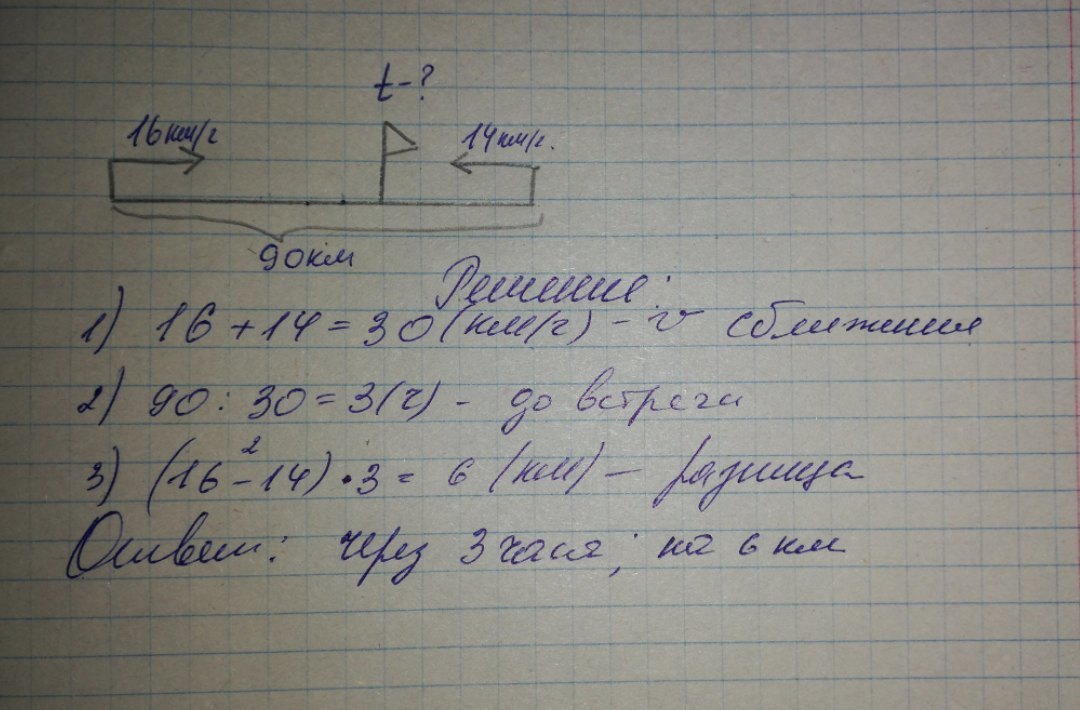 t-?
16км/ч 14км/ч.
90км
Решение:
1) 16 + 14 = 30 (км/ч) - v сближения
2) 90 : 30 = 3(ч) - до встречи
2
3) (16 - 14) • 3 = 6 (км) — разница
Ответ: через 3 часа; на 6 км